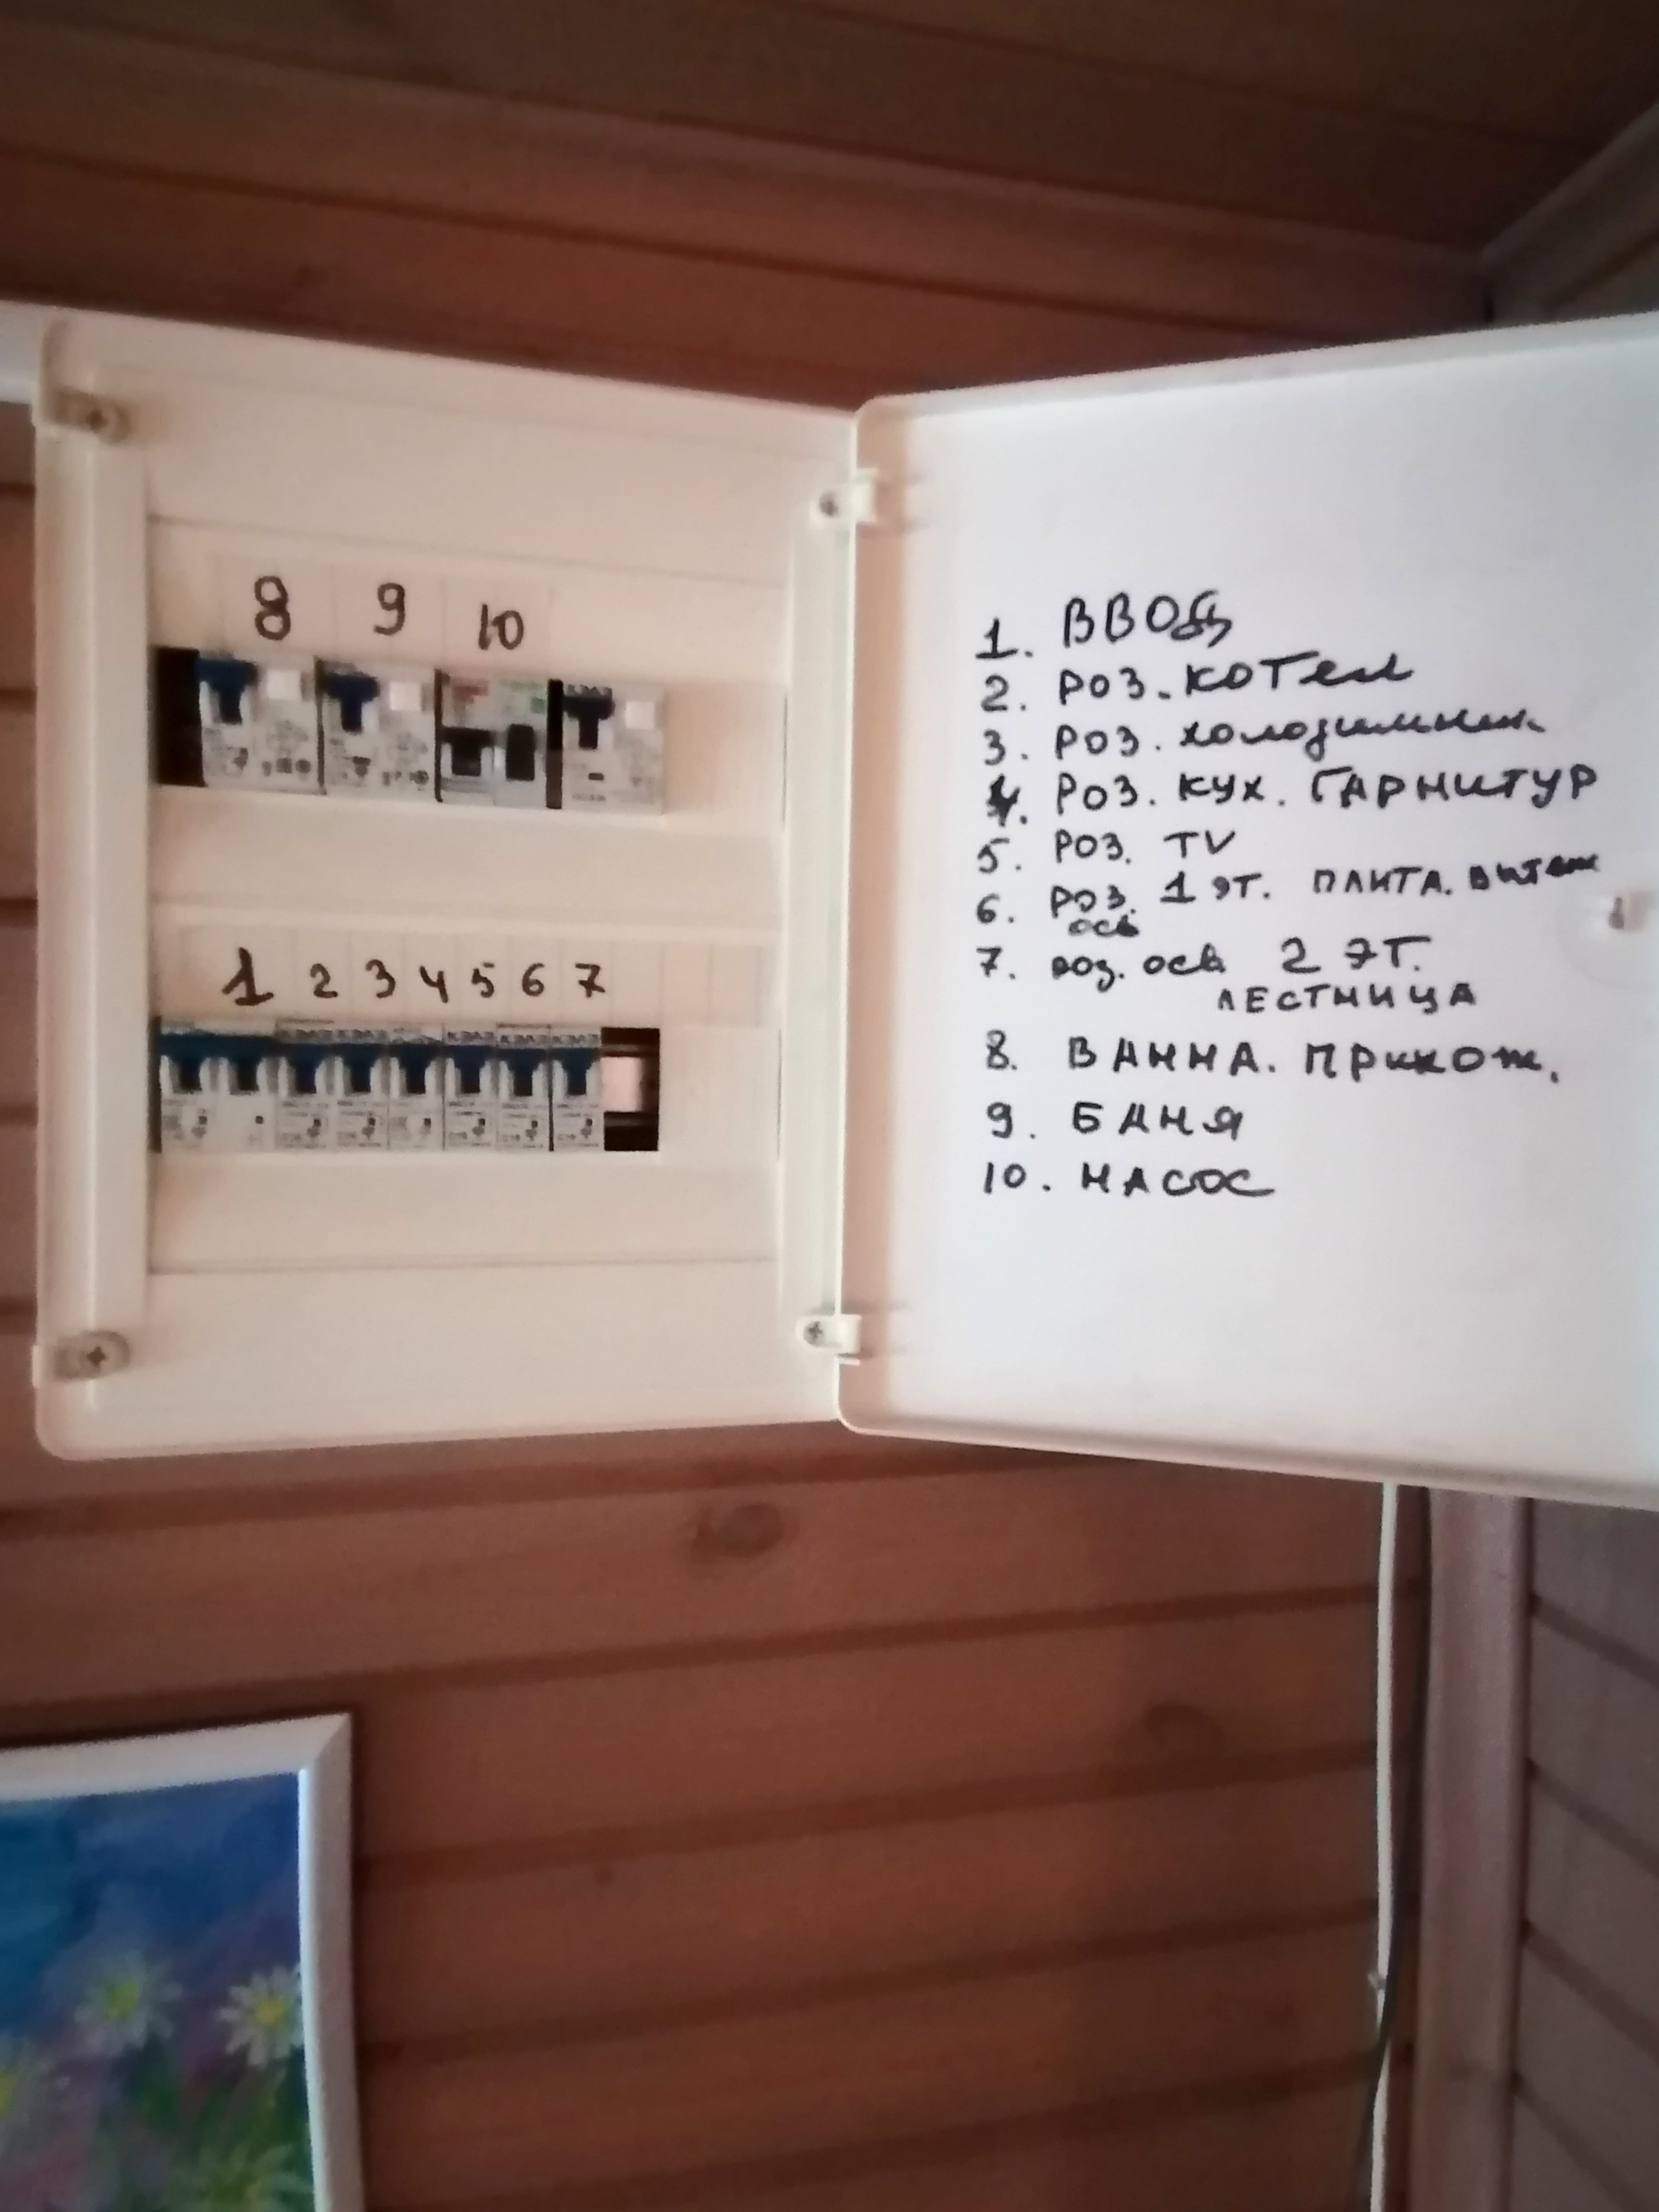 8 9 10
КЭАЗ
1 2 3 4 5 6 7
КЭАЗ КЭАЗ КЭАЗ КЭАЗ КЭАЗ
1. ВВОД
2. РОЗ. КОТел
3. РОЗ. холодильник
4. РОЗ. КУХ. ГАРНИТУР
5. РОЗ. TV
6. РОЗ. 1 ЭТ. ПЛИТА. вытяж
осв
7. роз. осв 2 ЭТ.
ЛЕСТНИЦА
8. ВАННА. ПРИХОЖ.
9. БАНЯ
10. НАСОС